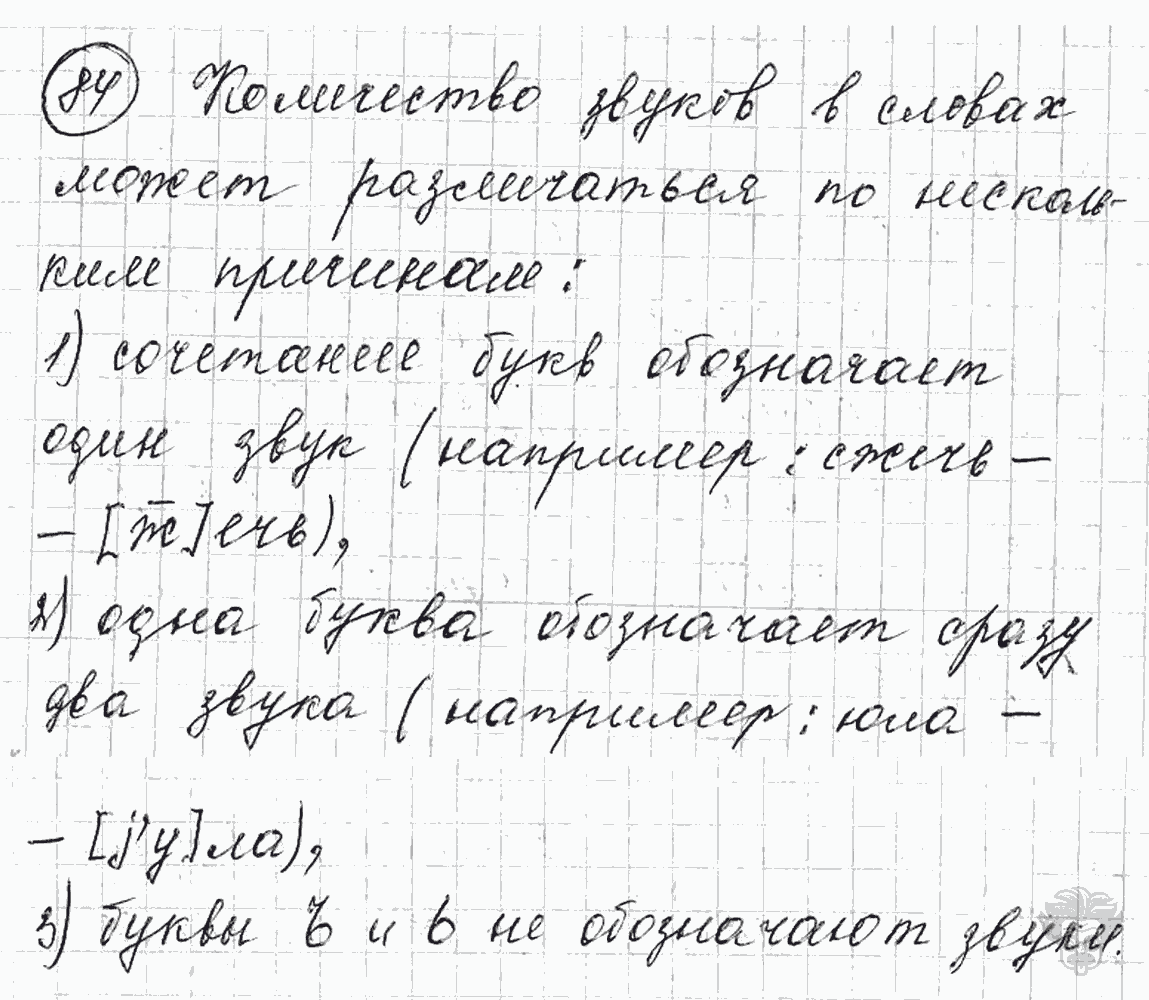 84 Количество звуков в словах
может различаться по несколь-
ким причинам:
1) сочетание букв обозначает
один звук (например: сжечь –
– [ж̅]ечь),
2) одна буква обозначает сразу
два звука (например: юла –
– [j'у]ла),
3) буквы ъ и ь не обозначают звуки.